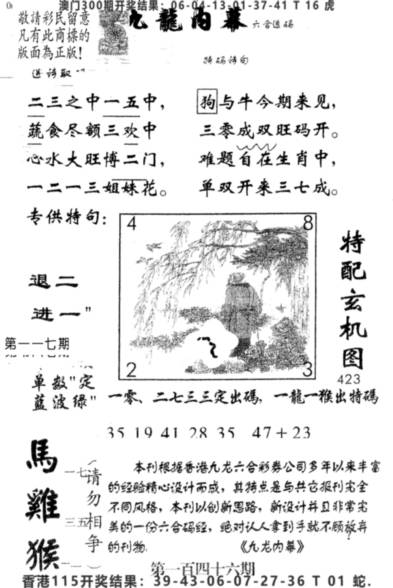 澳门300期开奖结果：06-04-13-01-37-41 T 16 虎
敬請彩民留意
凡有此商標的
版面為正版!
九龍内幕 六合透码
送诗取
特码诗句
二三之中一五中，
狗与牛今期来见，
蔬食尽额三欢中
三零成双旺码开。
心水大旺博二门，
难题自在生肖中，
一二一三姐妹花。
单双开来三七成。
专供特句：
4
8
2
3
退二
进一"
特配玄机图
423
第一一七期
单数"定
蓝波绿"
一零、二七三三定出碼，一龍一猴出特碼
35 19 41 28 35 47+23
馬雞猴
一七
三五
（请勿相争）
本刊根据香港九龙六合彩劵公司多年以来丰富
的经验精心设计而成，其特点是与其它报刊完全
不同风格，本刊以创新思路，新设计并且非常完
美的一份六合码经，绝对认人拿到手就不愿放弃
的刊物.
《九龙内幕》
第一百四十六期
香港115开奖结果：39-43-06-07-27-36 T 01 蛇.